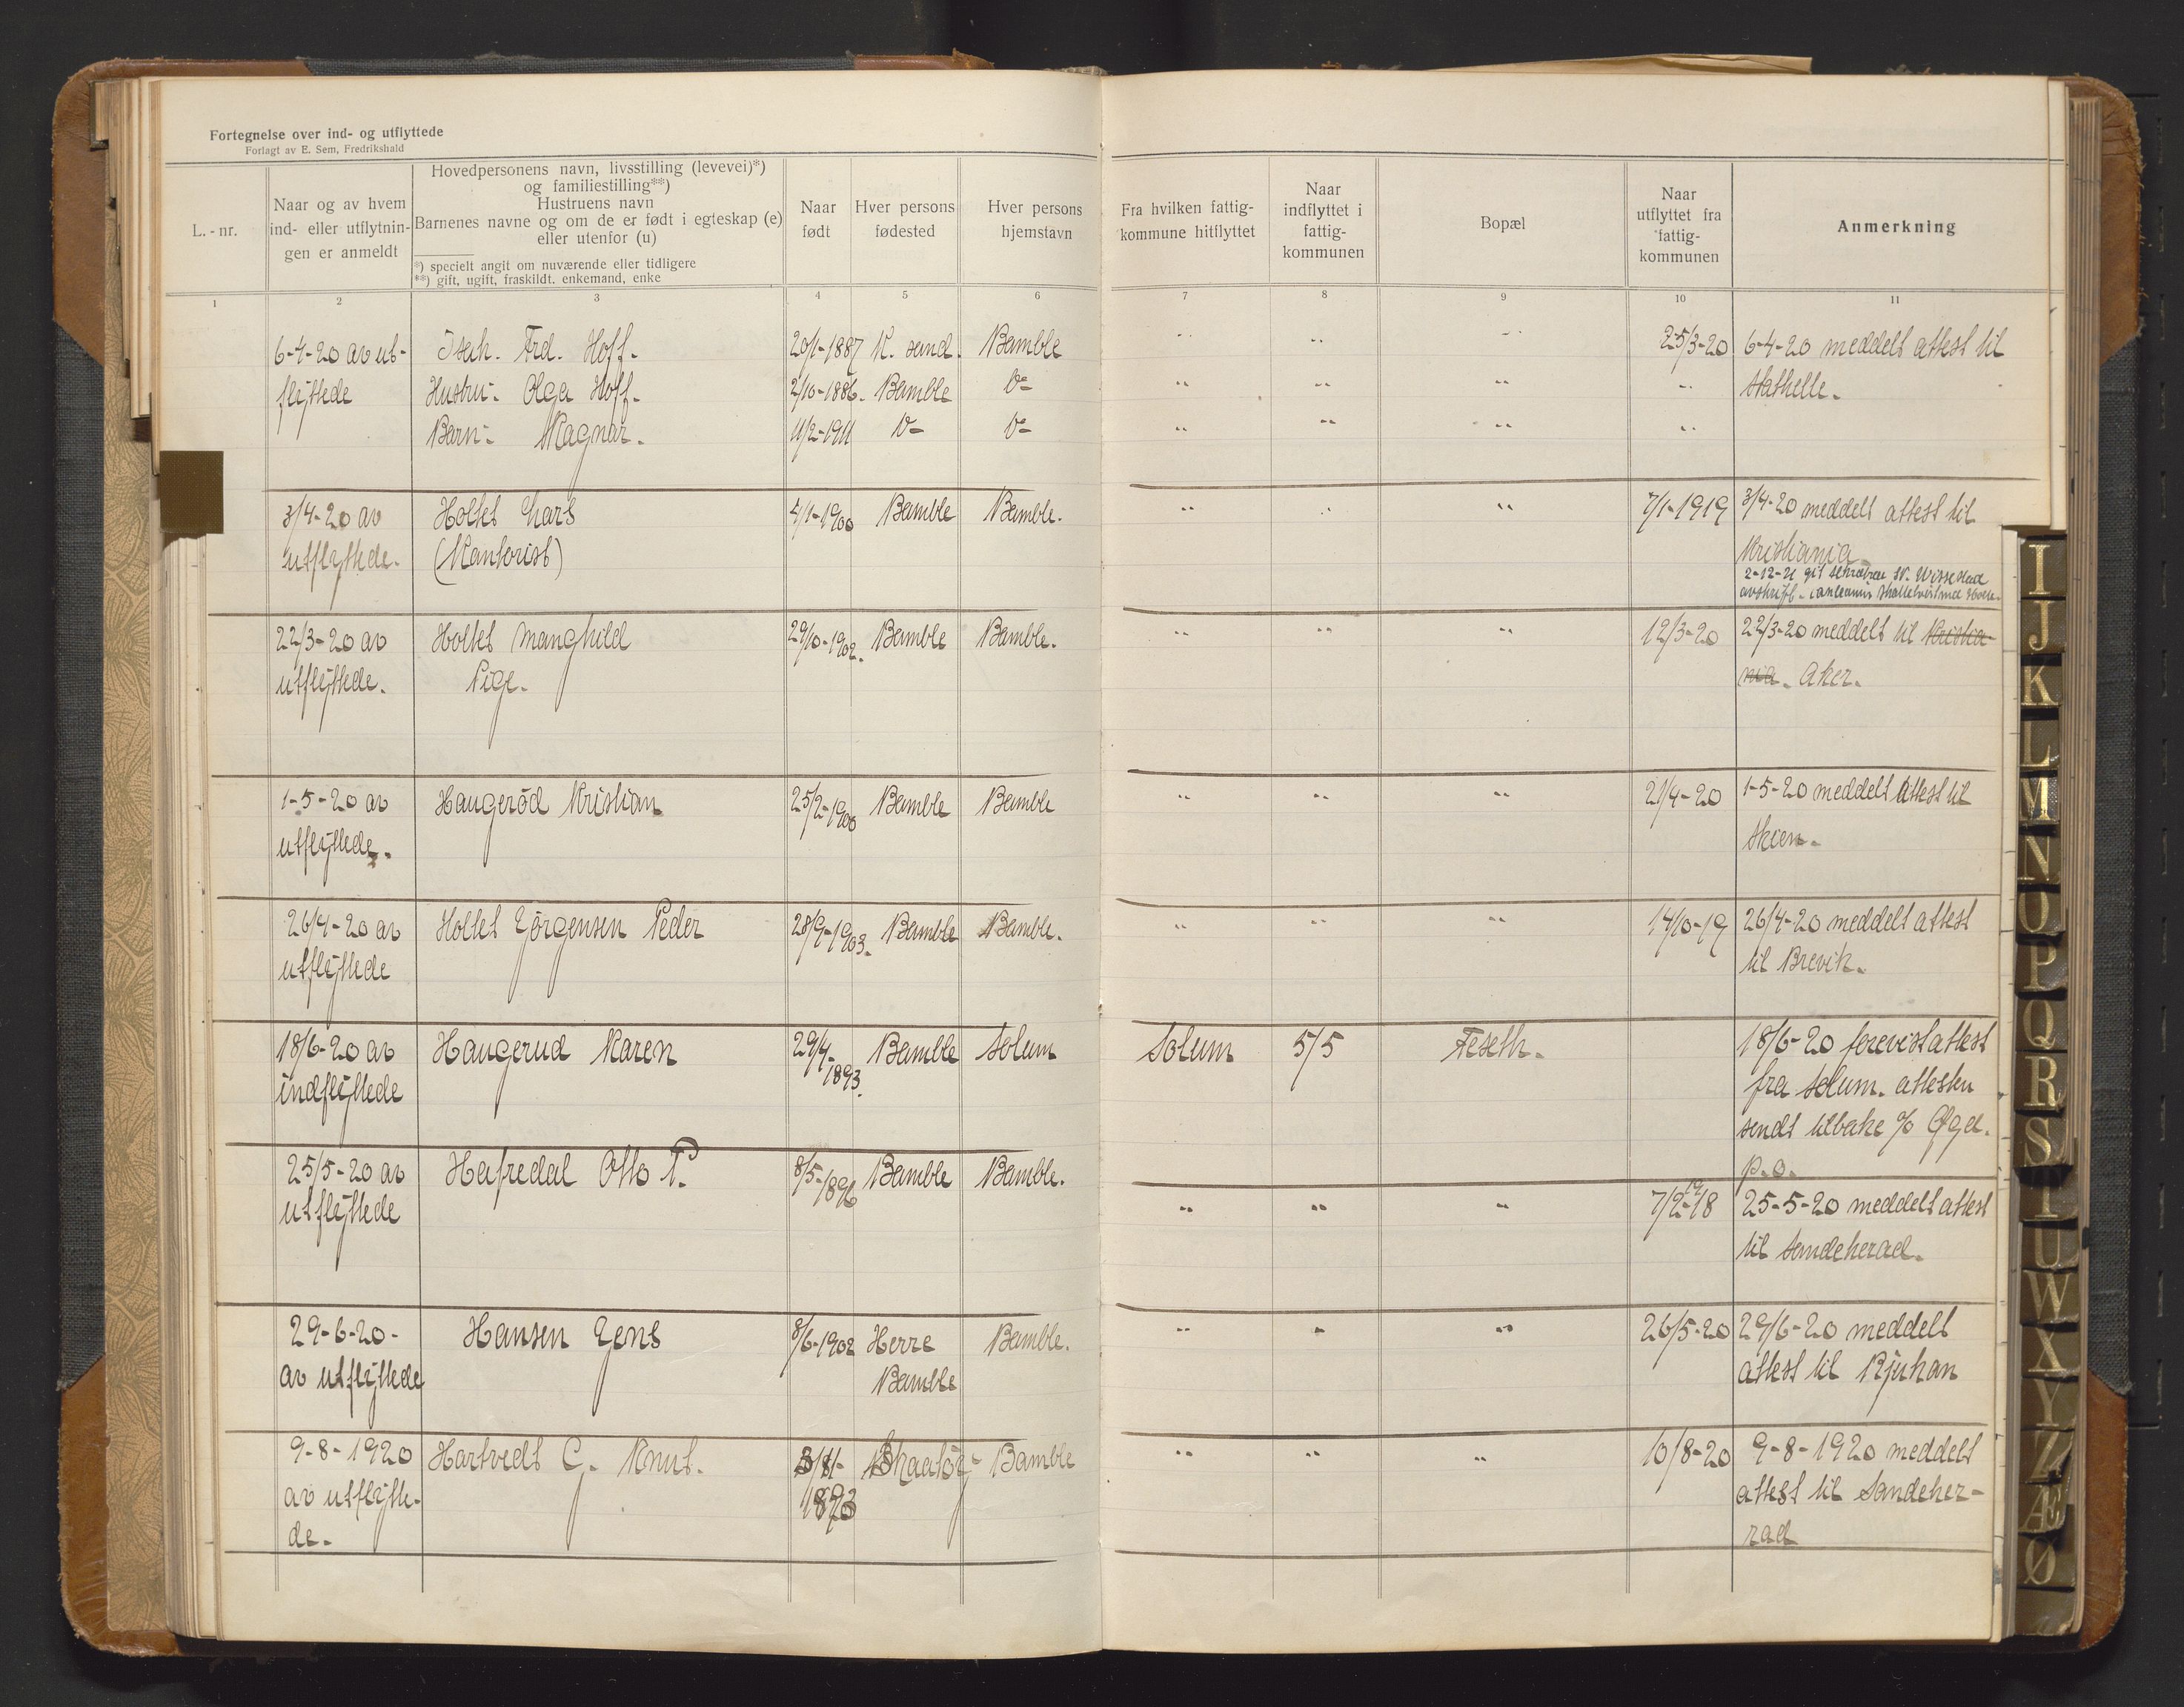 Fortegnelse over ind- og utflyttede
Forlagt av E. Sem, Fredrikshald
L.-nr.
Naar og av hvem
ind- eller utflytnin-
gen er anmeldt
Hovedpersonens navn, livsstilling (levevei)*)
og familiestilling**)
Hustruens navn
Barnenes navne og om de er født i egteskap (e)
eller utenfor (u)
*) specielt angit om nuværende eller tidligere
**) gift, ugift, fraskildt, enkemand, enke
Naar
født
Hver persons
fødested
Hver persons
hjemstavn
Fra hvilken fattig-
kommune hitflyttet
Naar
indflyttet i
fattig-
kommunen
Bopæl
Naar
utflyttet fra
fattig-
kommunen
Anmerkning
1 2 3 4 5 6 7 8 9 10 11
6-4-20 av ut- Frd. Hoff. 20/1-1887 K. sund. Bamble " " " 25/3-20 6-4-20 meddelt attest til
flyttede Hustru: Olga Hoff. 2/10-1886. Bamble Do " " " " Stathelle.
Barn: Magnar. 11/2-1911 Do Do " " " "
3/4-20 av Holtet Lars 4/1-1900 Bamble Bamble. " " " 7/1-1919 3/4-20 meddelt attest til
utflyttede. (Kontorist) Kristiania.
2-12-21 git
avskrift.
22/3-20 av Holtet Manghild 29/10-1902. Bamble Bamble. " " " 12/3-20 22/3-20 meddelt til Kristia-
utflyttede. Pige. nia. Aker.
1-5-20 av Haugerød Kristian 25/2-1900 Bamble Bamble " " " 21/4-20 1-5-20 meddelt Attest til
utflyttede. Skien.
26/4-20 av Holtet Jørgensen Peder 28/9-1903. Bamble Bamble. " " " 14/10-19 26/4-20 meddelt attest
utflyttede til Brevik.
18/6-20 av Haugerud Karen 29/4- Bamble Solum Solum 5/5 Feseth. 18/6-20 forevist attest
indflyttede 1893. fra Solum. attesten
sendt tilbake % Øgd.
p.o.
25/5-20 av Hafredal Otto P. 8/5-1896 Bamble Bamble. " " " 7/2-18 25-5-20 meddelt attest
utflyttede til Sandeherad.
29-6-20- Hansen Jens 8/6-1902 Herre Bamble. " " " 26/5-20 29/6-20 meddelt
av utflyttede Bamble attest til Rjukan
9-8-1920 Hartvedt G. Knut. Skaatøy- Bamble " " " 10/8-20 9-8-1920 meddelt
av utflytte- attest til Sandeher-
de. rad
I
J
K
L
M
N
O
P
Q
R
S
T
U
W
X
Y
Z
Æ
Ø